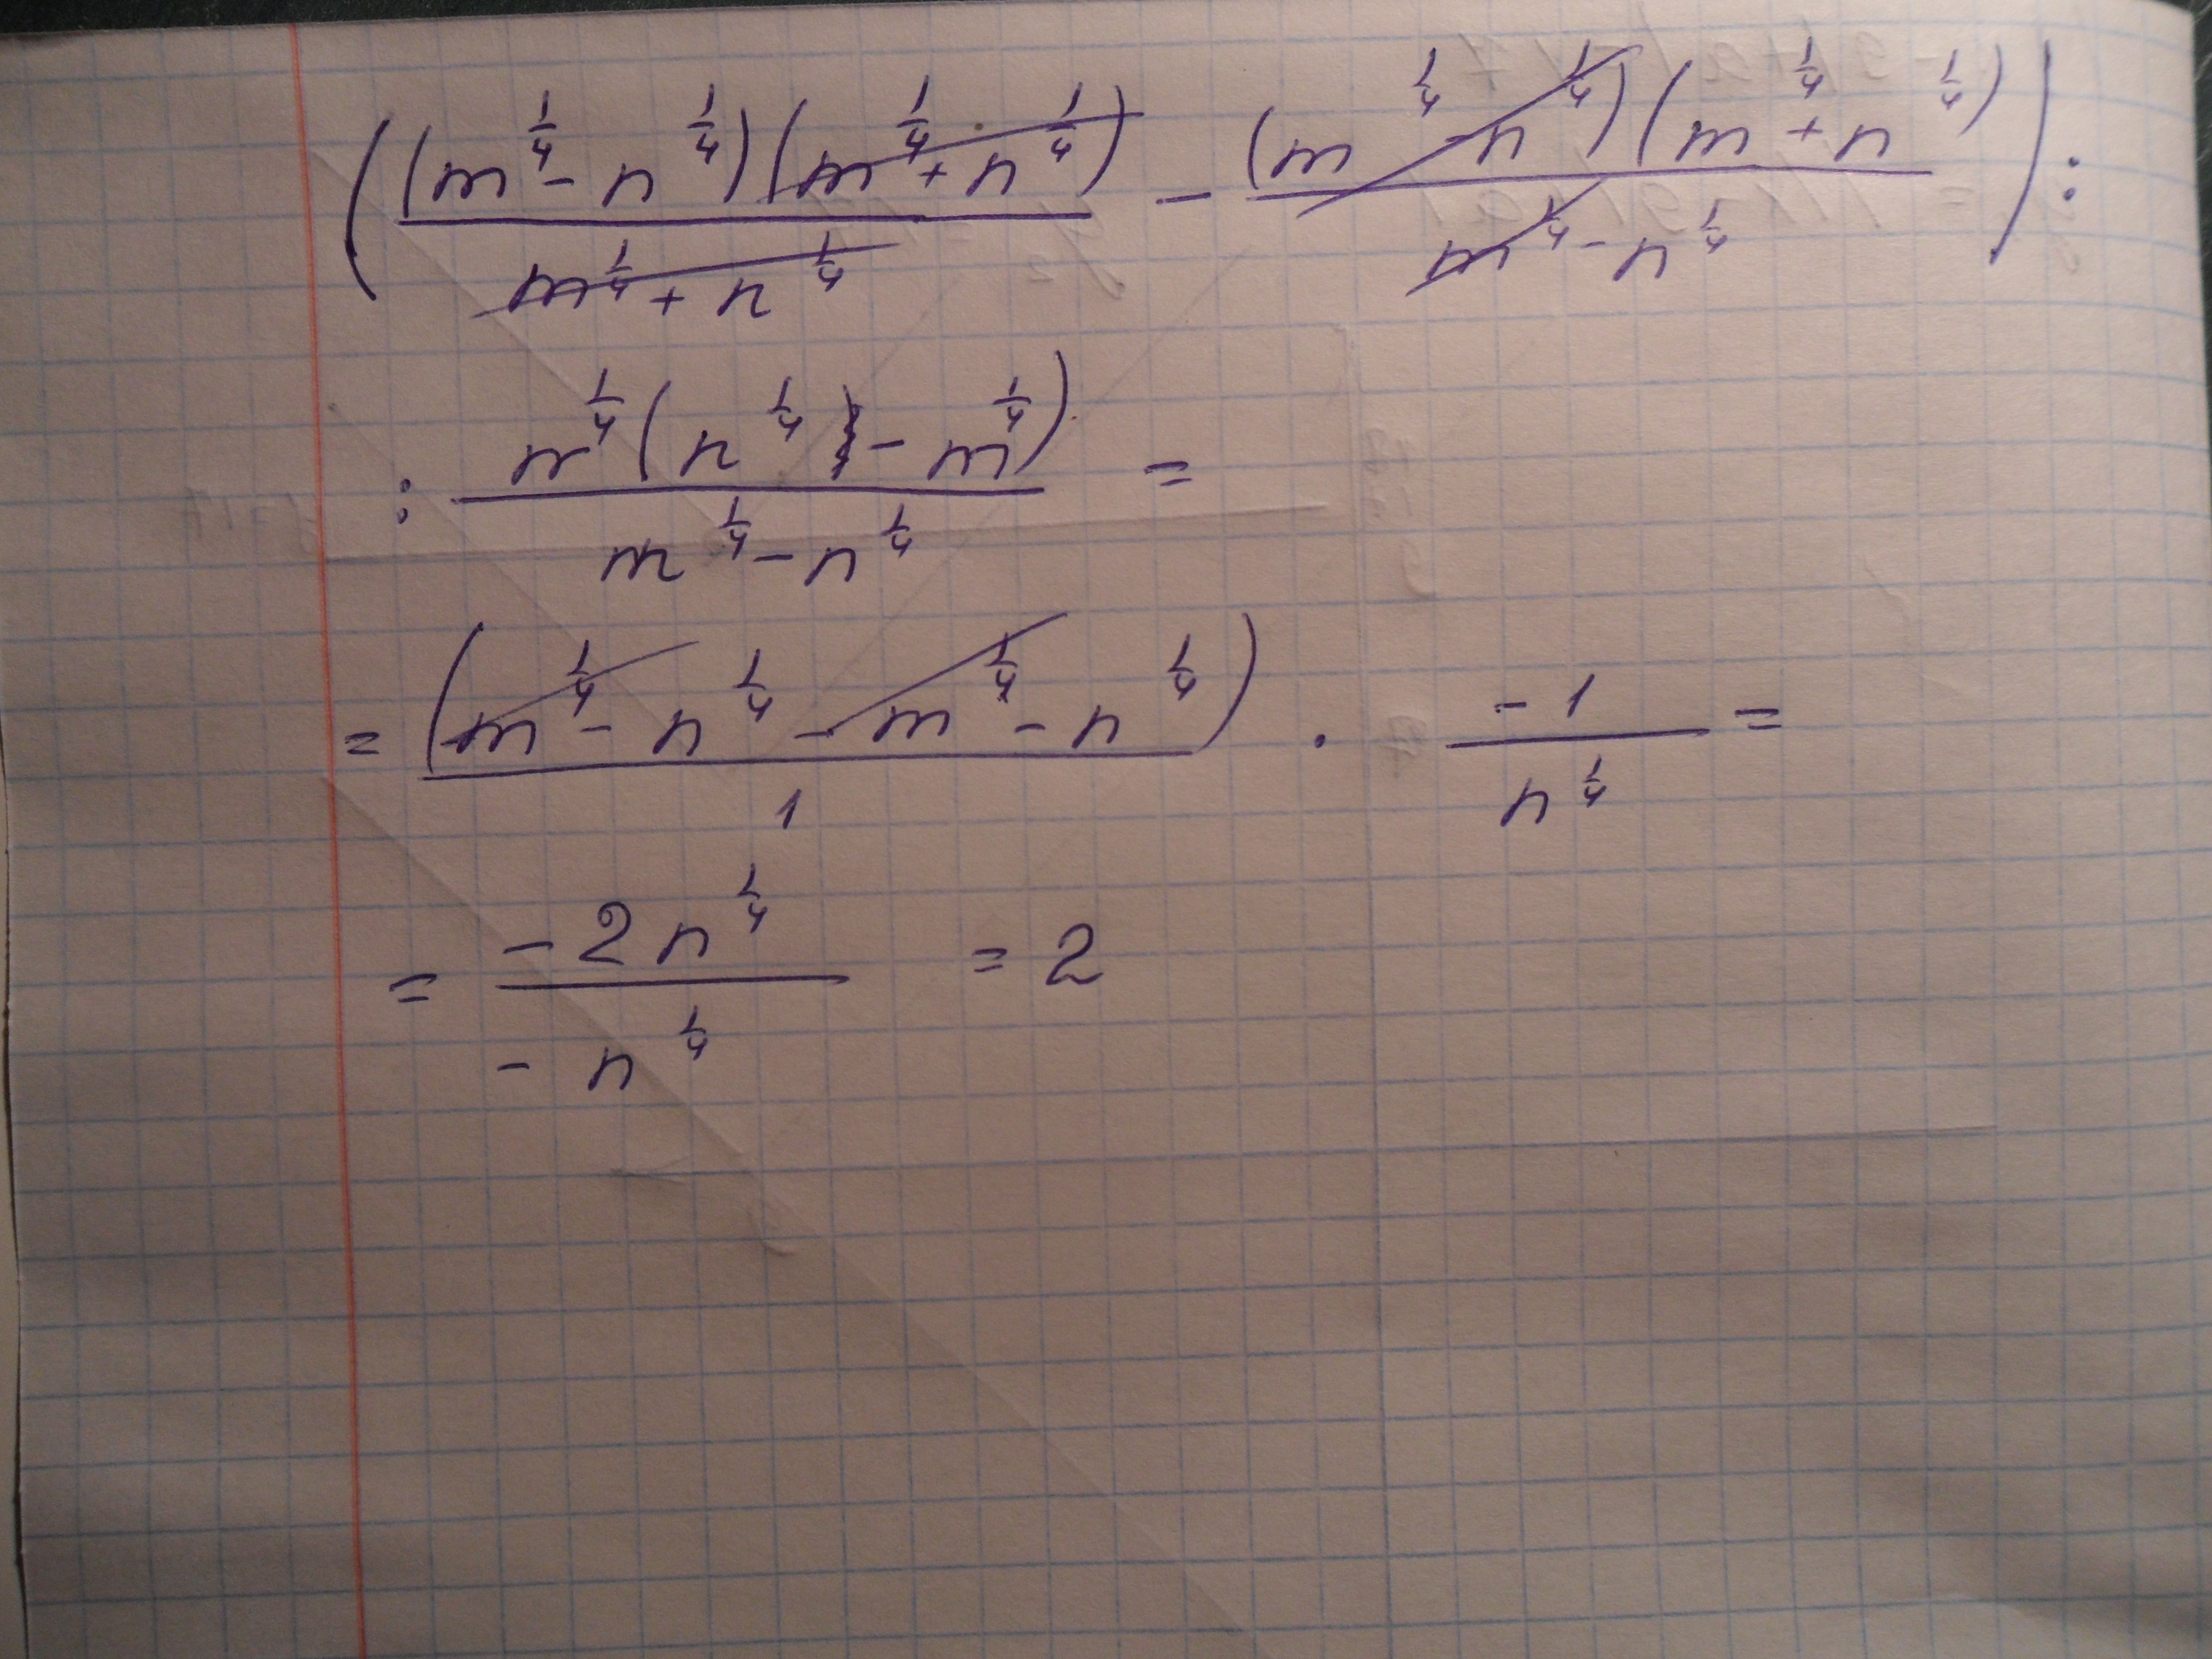 (((m^(1/4) - n^(1/4))(m^(1/4) + n^(1/4)))/(m^(1/4) + n^(1/4)) - ((m^(1/4) - n^(1/4))(m^(1/4) + n^(1/4)))/(m^(1/4) - n^(1/4))) :
: (n^(1/4)(n^(1/4) - m^(1/4)))/(m^(1/4) - n^(1/4)) =
= (m^(1/4) - n^(1/4) - m^(1/4) - n^(1/4))/1 · (-1)/(n^(1/4)) =
= (-2n^(1/4))/(-n^(1/4)) = 2